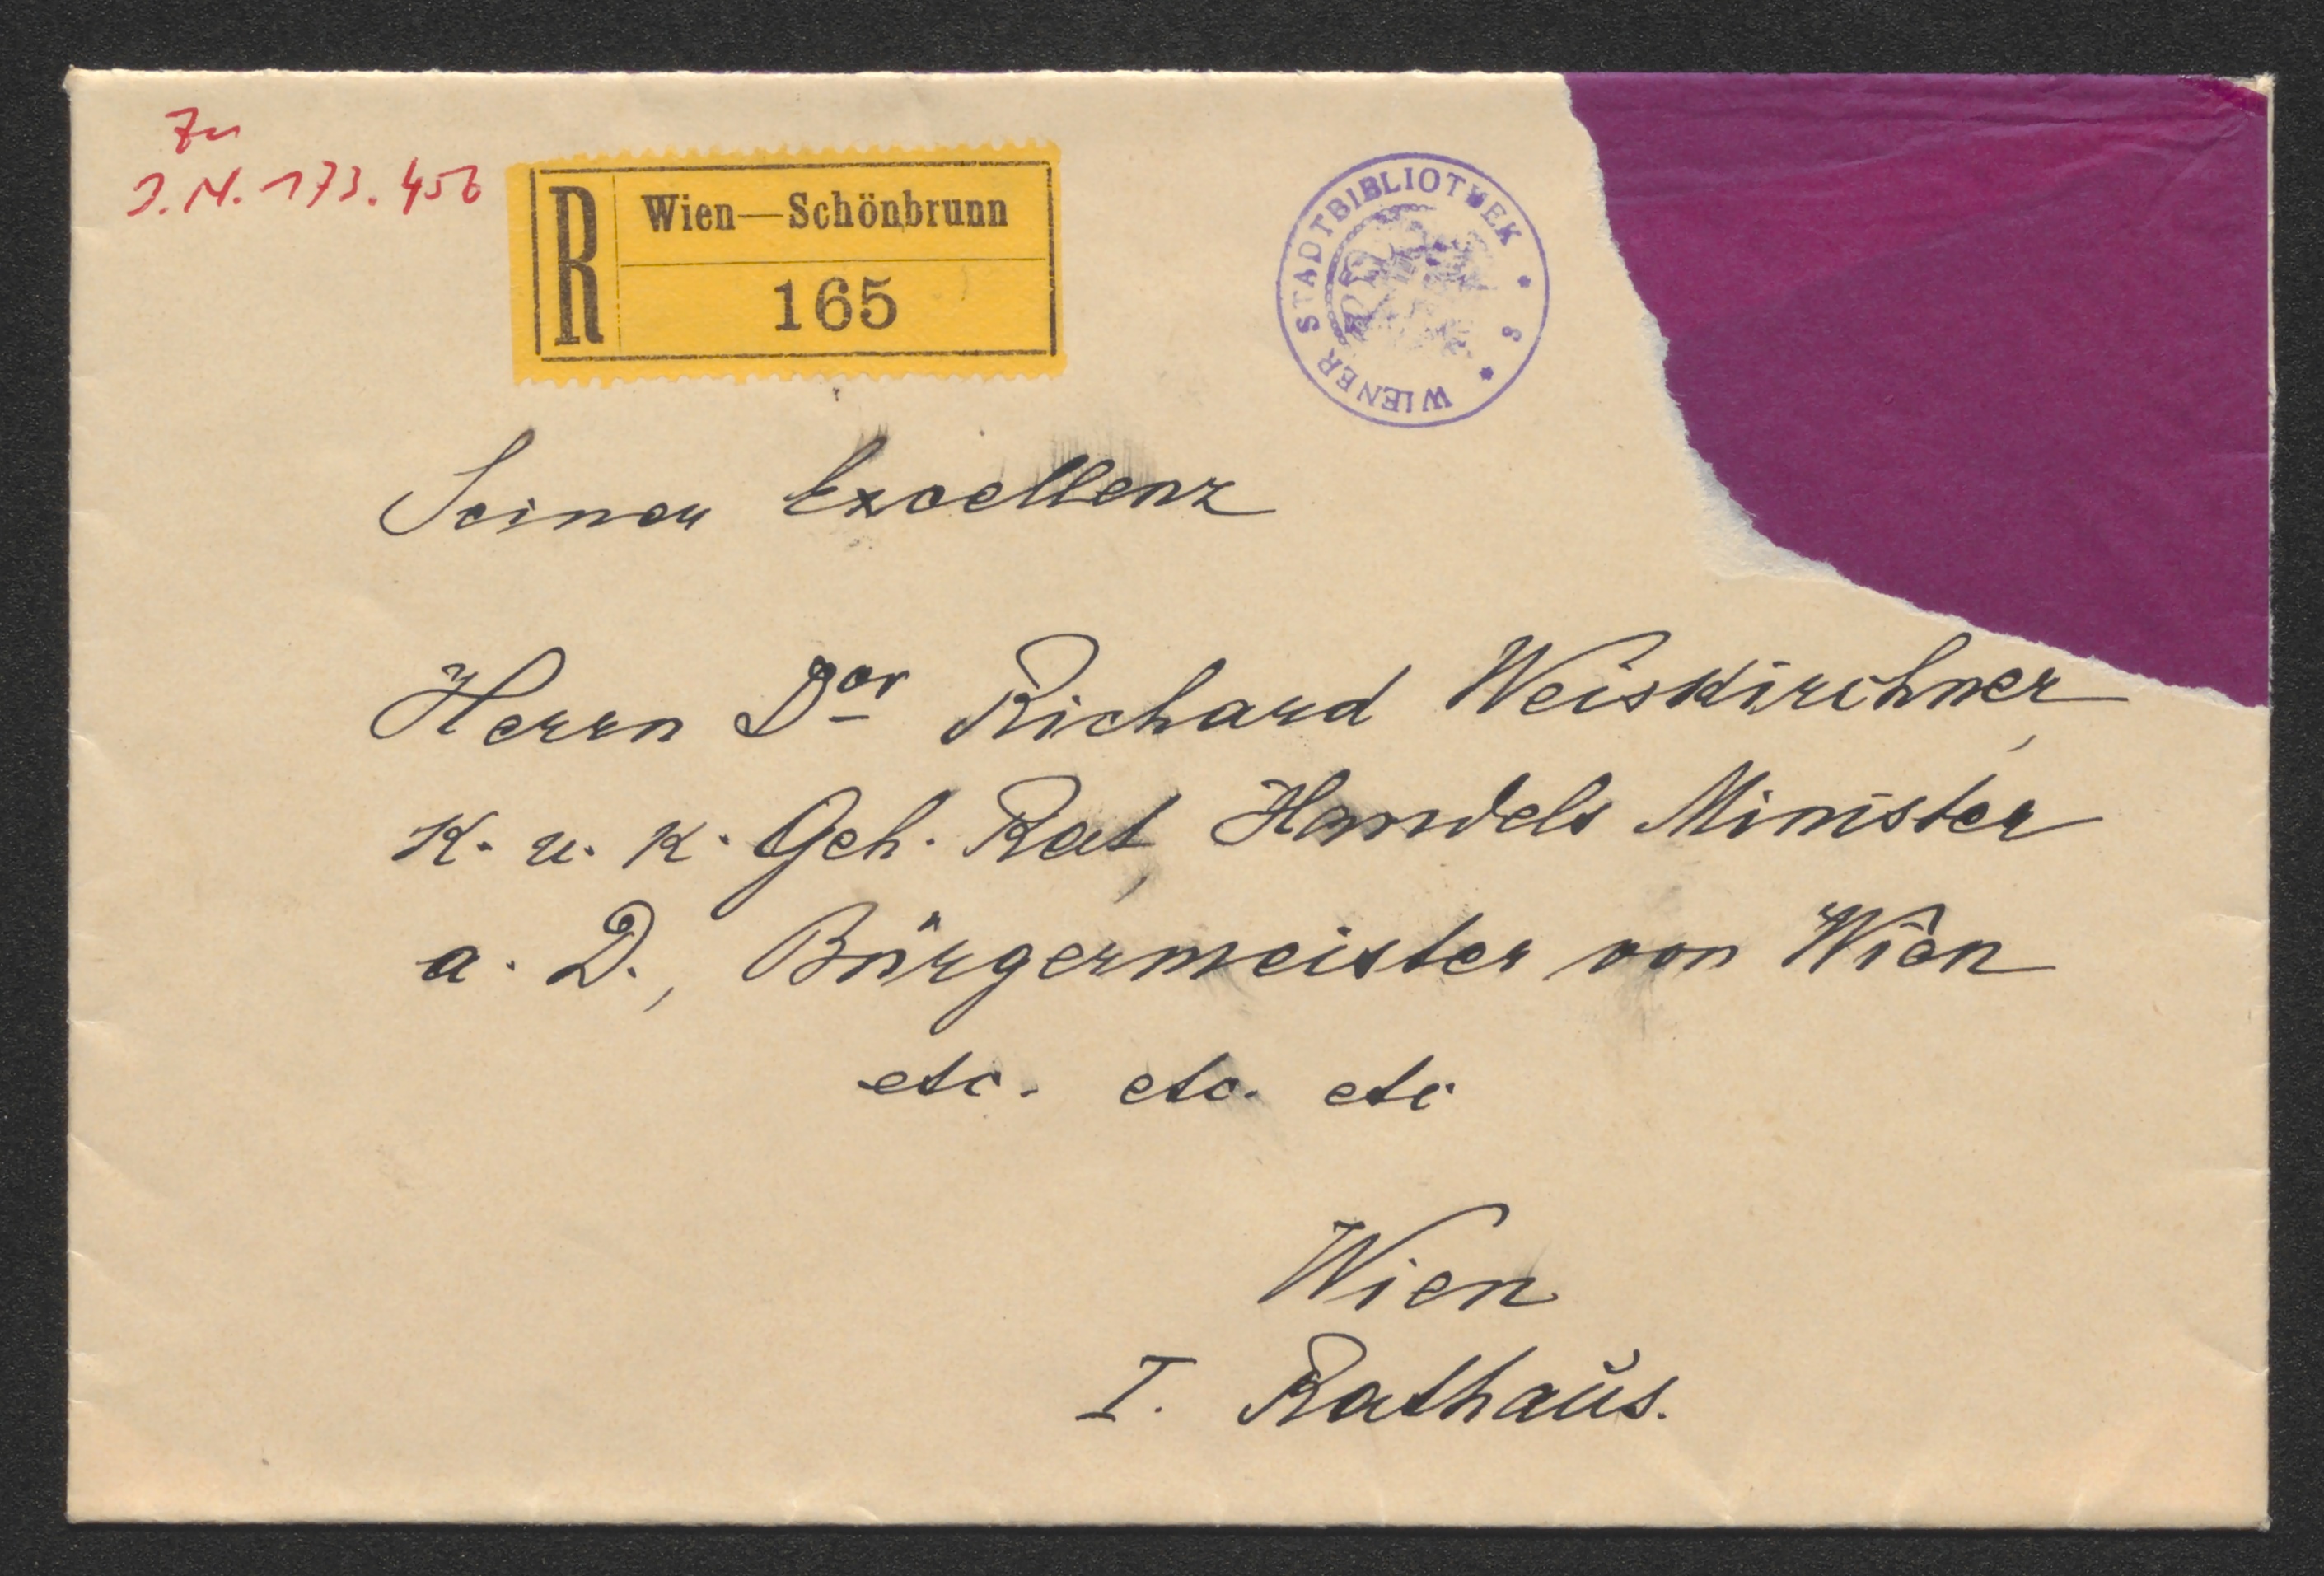 Zu
I.N. 173.456
R
Wien—Schönbrunn
165
WIENER STADTBIBLIOTHEK * 8 *
Seiner Excellenz
Herrn Dor Richard Weiskirchner,
K. u. K. Geh. Rat, Handels Minister
a. D., Bürgermeister von Wien
etc. etc. etc
Wien
I. Rathaus.